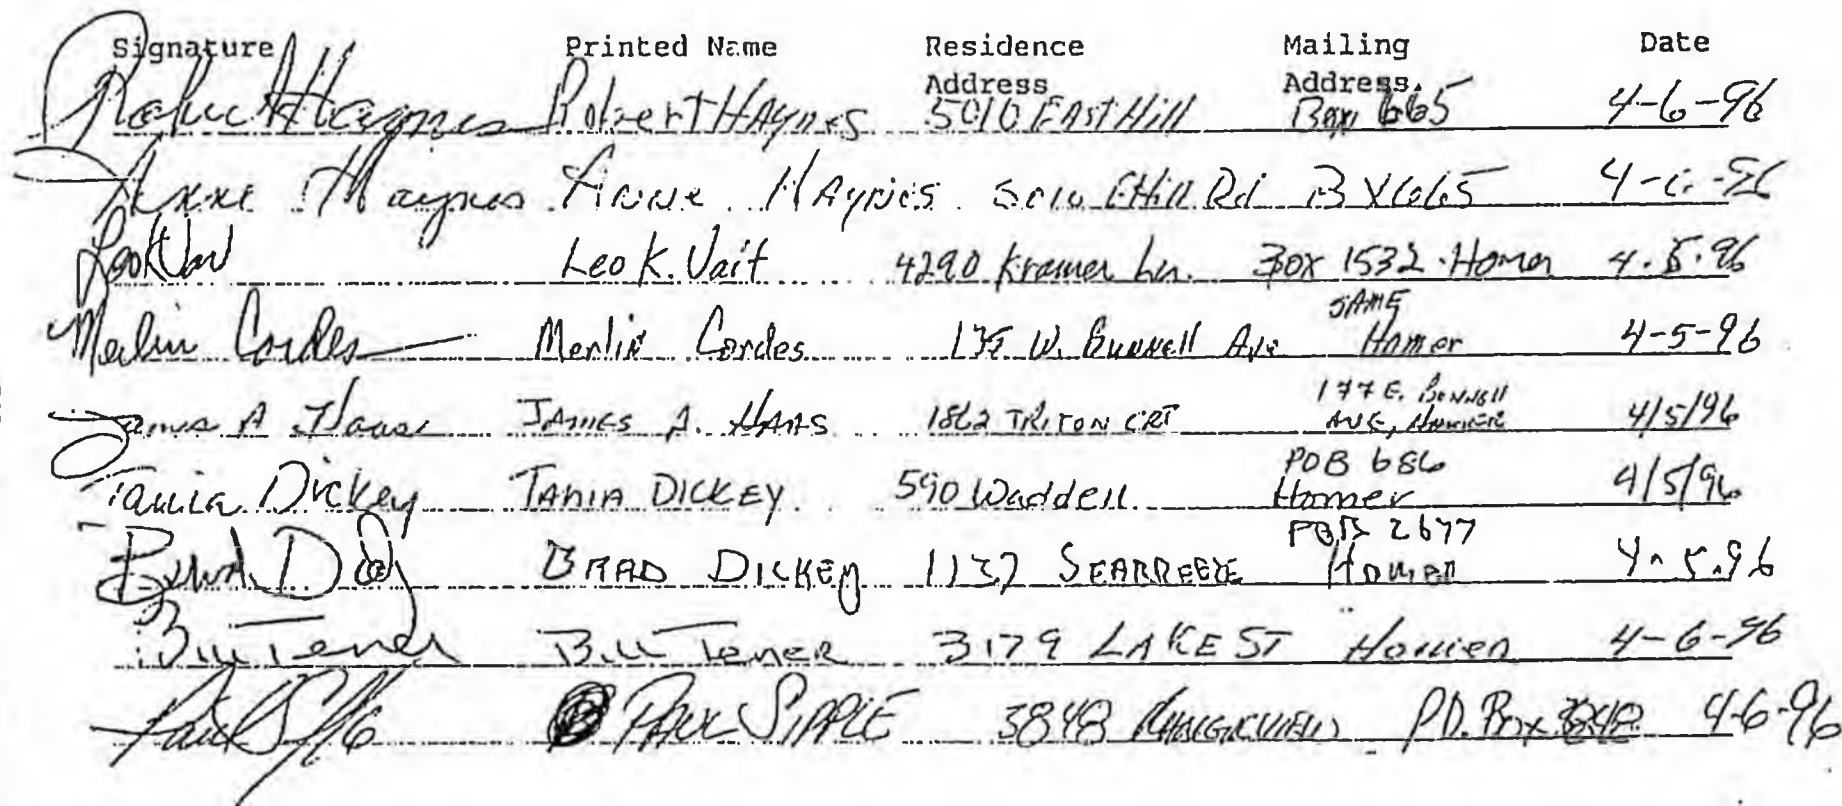 Signature Printed Name Residence Address Mailing Address Date
Robert Haynes Robert HAynes 5010 EAST Hill Box 665 4-6-96
Anne Haynes Anne HAyNes 5010 EHill Rd BX 665 4-6-96
Leo K. Vait 4290 Kramer Ln. Box 1532 Homer 4.5.96
Merlin Cordes Merlin Cordes W. Bunnell Ave SAME Homer 4-5-96
James A Haas JAMES A. HAAS 1862 TRITON CRT 177 E. BUNNELL AVE, HOMER 4/5/96
Tania Dickey TANIA DICKEY 590 Waddell POB 686 Homer 4/5/96
BRAD DICKEY 1137 SEABREEZE POB 2677 HOMER 4.5.96
Bill Tener Bill Tener 3179 LAKE ST Homer 4-6-96
Paul PAUL SIPPLE 3848 P.O. Box 4-6-96